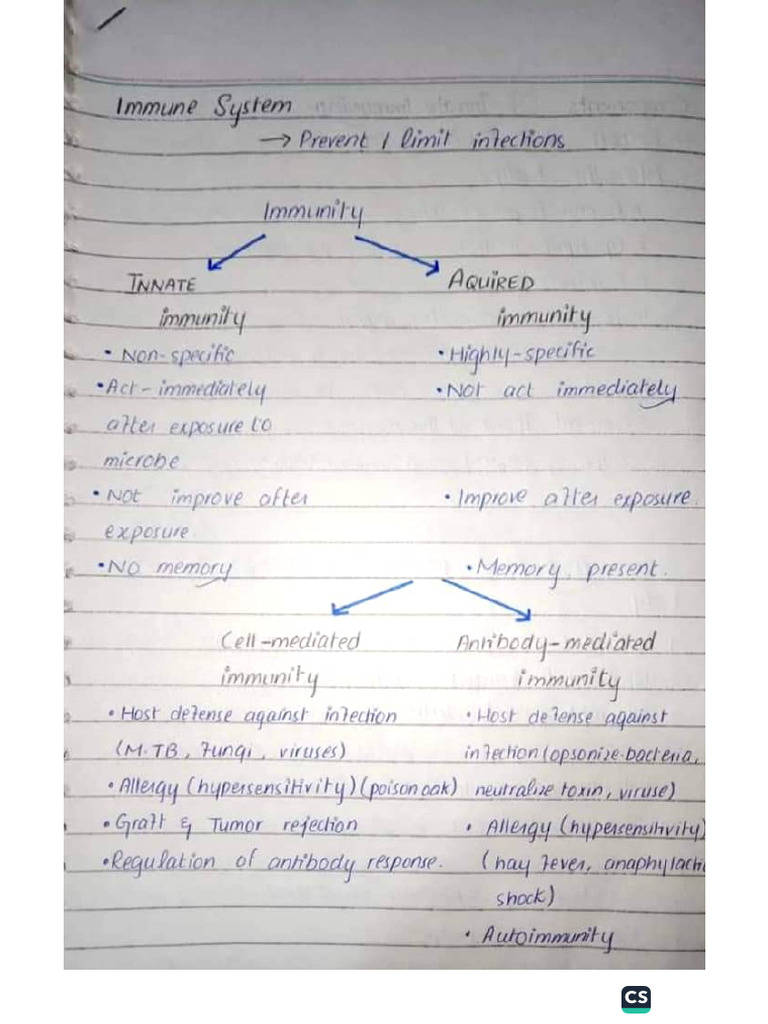 Immune System
→ Prevent / limit infections
Immunity
INNATE
immunity
AQUIRED
immunity
• Non-specific
• Highly-specific
• Act-immediately
after exposure to
microbe
• Not act immediately
• Not improve after
exposure
• Improve after exposure.
• No memory
• Memory, present.
Cell-mediated
immunity
Antibody-mediated
immunity
• Host defense against infection
(M.TB, Fungi, viruses)
• Allergy (hypersensitivity) (poison oak)
• Graft & Tumor rejection
• Regulation of antibody response.
• Host defense against
infection (opsonize-bacteria,
neutralize toxin, viruse)
• Allergy (hypersensitivity)
(hay fever, anaphylacti
shock)
• Autoimmunity
CS